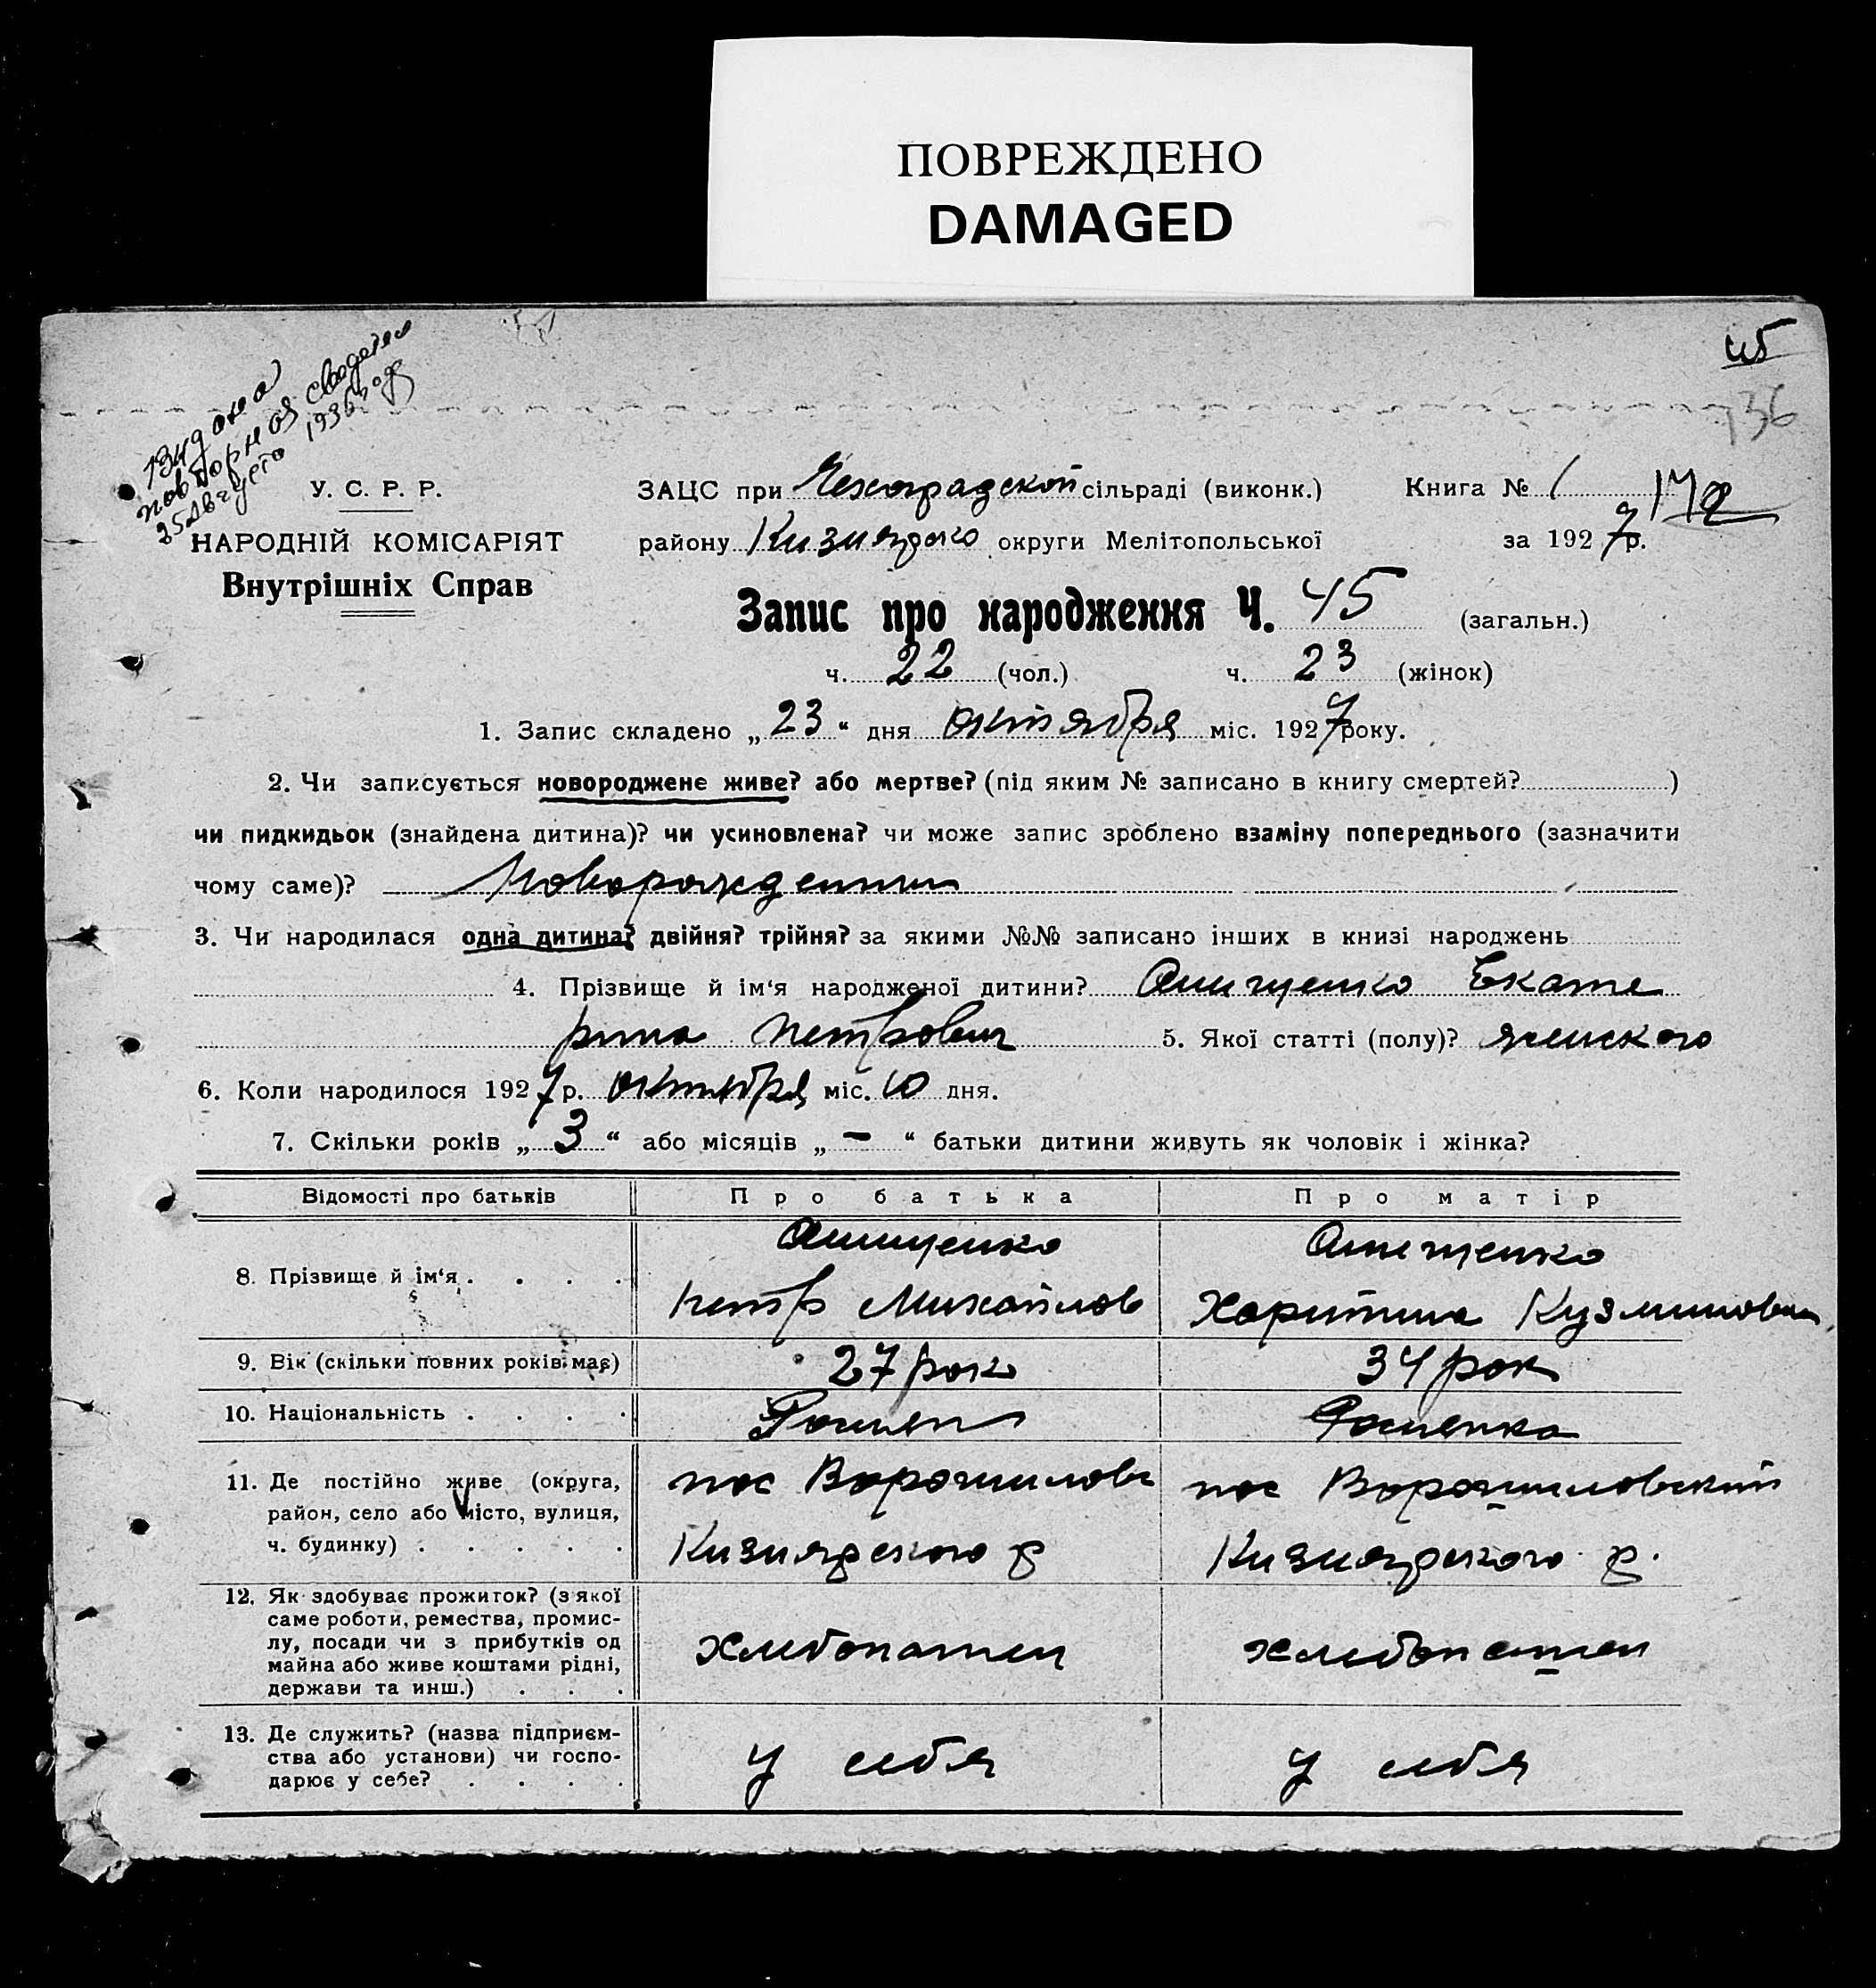 ПОВРЕЖДЕНО
DAMAGED
45
136
повторноя
25 Августа 1936 года
У. С. Р. Р.
НАРОДНІЙ КОМІСАРІЯТ
Внутрішніх Справ
ЗАЦС при Чехоградской сільраді (виконк.) Книга № 1
району Кизиярского округи Мелітопольської за 1927 р.
Запис про народження Ч. 45 (загальн.)
ч. 22 (чол.) ч. 23 (жінок)
1. Запис складено „23“ дня октября міс. 1927 року.
2. Чи записується новороджене живе? або мертве? (під яким № записано в книгу смертей? )
чи пидкидьок (знайдена дитина)? чи усиновлена? чи може запис зроблено взаміну попереднього (зазначити
чому саме)?
3. Чи народилася одна дитина? двійня? трійня? за якими №№ записано інших в книзі народжень
4. Прізвище й ім‘я народженої дитини? Онищенко Екате
рина Петровна 5. Якої статті (полу)? женского
6. Коли народилося 1927 р. октября міс. 10 дня.
7. Скільки років „3“ або місяців „-“ батьки дитини живуть як чоловік і жінка?
Відомості про батьків Про батька Про матір
8. Прізвище й ім‘я . . . . Онищенко Онищенко
Петр Михайлов Харитина Кузминовна
9. Вік (скільки повних років має) 27 рок 34 рок
10. Національність . . . .
11. Де постійно живе (округа, пос Ворошиловс пос Ворошиловский
район, село або місто, вулиця,
ч. будинку) . . . . . Кизиярского р Кизиярского р.
12. Як здобуває прожиток? (з якої
саме роботи, ремества, промис-
лу, посади чи з прибутків од хлебопашец хлебопашец
майна або живе коштами рідні,
держави та инш.) . . .
13. Де служить? (назва підприєм-
ства або установи) чи госпо- у себя у себя
дарює у себе? . . . .